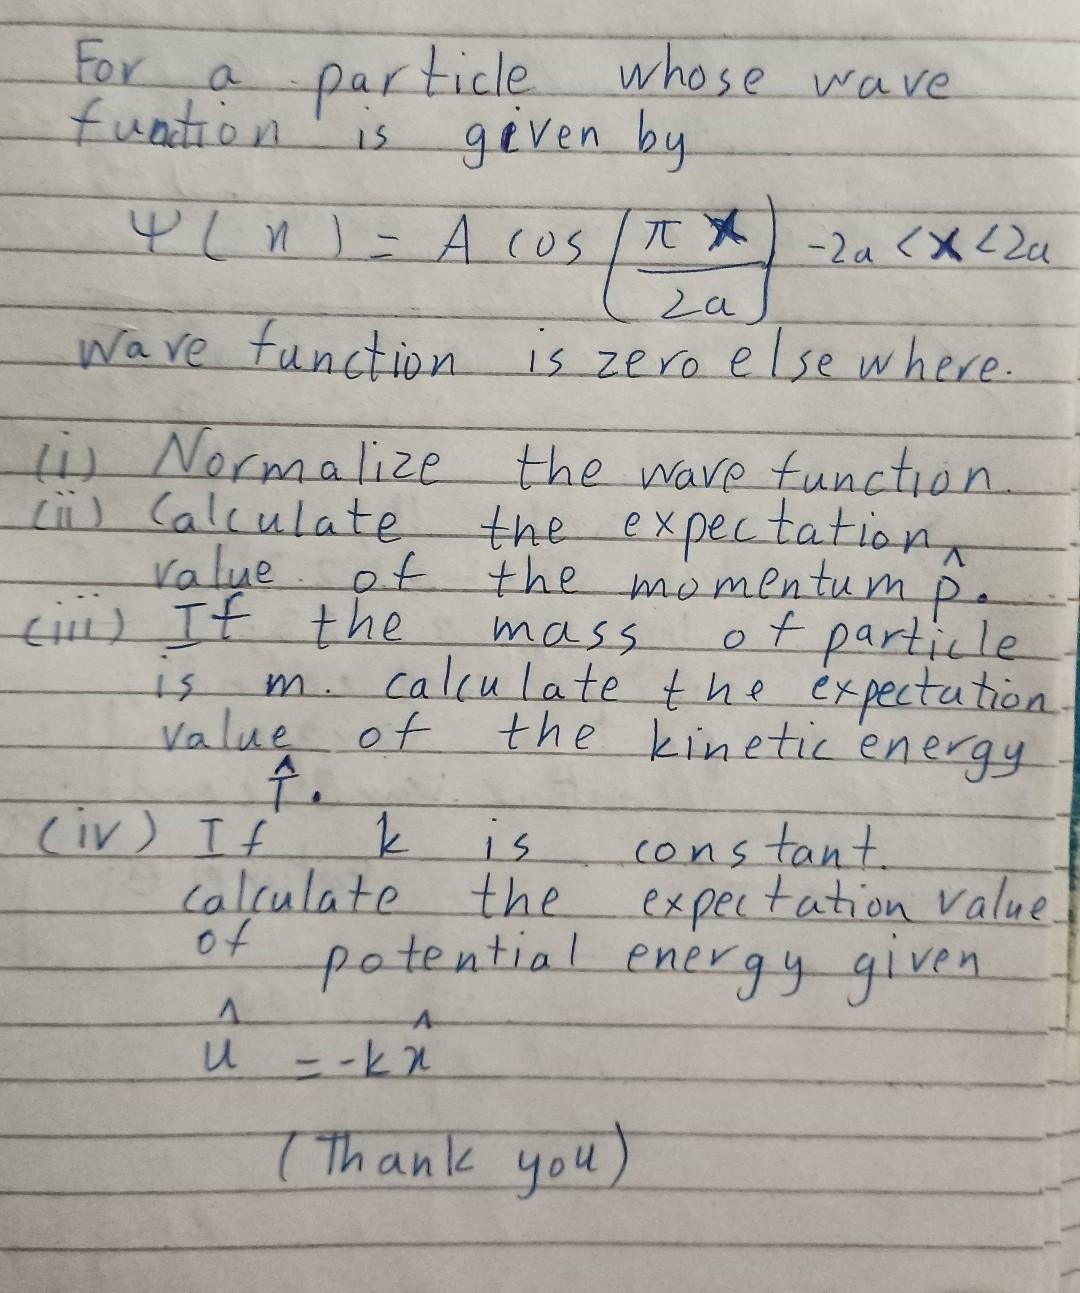 For a particle whose wave
function is given by
Ψ(x) = A cos(πx/2a) -2a <x<2a
wave function is zero elsewhere.
(i) Normalize the wave function.
(ii) Calculate the expectation
value of the momentum p̂.
(iii) If the mass of particle
is m. calculate the expectation
value of the kinetic energy
T̂.
(iv) If k is constant.
calculate the expectation value
of potential energy given
û = -kx̂
(Thank you)